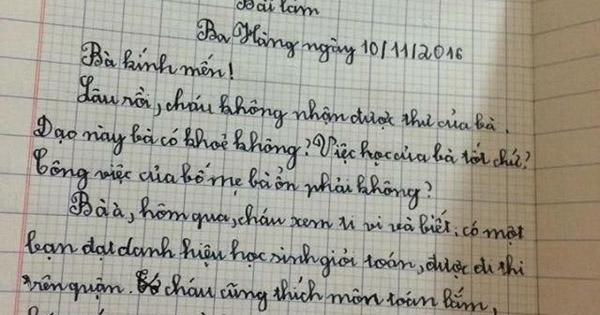 Bài làm
Ba Hàng ngày 10/11/2016
Bà kính mến!
Lâu rồi, cháu không nhận được thư của bà.
Dạo này bà có khoẻ không? Việc học của bà tốt chứ?
Công việc của bố mẹ bà ổn phải không?
Bà à, hôm qua, cháu xem ti vi và biết, có một
bạn đạt danh hiệu học sinh giỏi toán, được đi thi
trên quận. cháu cũng thích môn toán lắm,